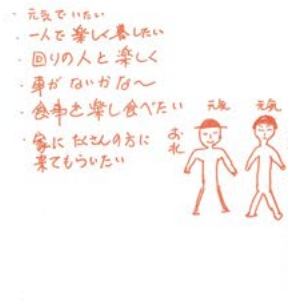 ・元気でいたい
・一人で楽しく暮したい
・回りの人と楽しく
・車がないかな〜
・食事を楽し食べたい
・家にたくさんの方に
来てもらいたい
元気 元気
おれ